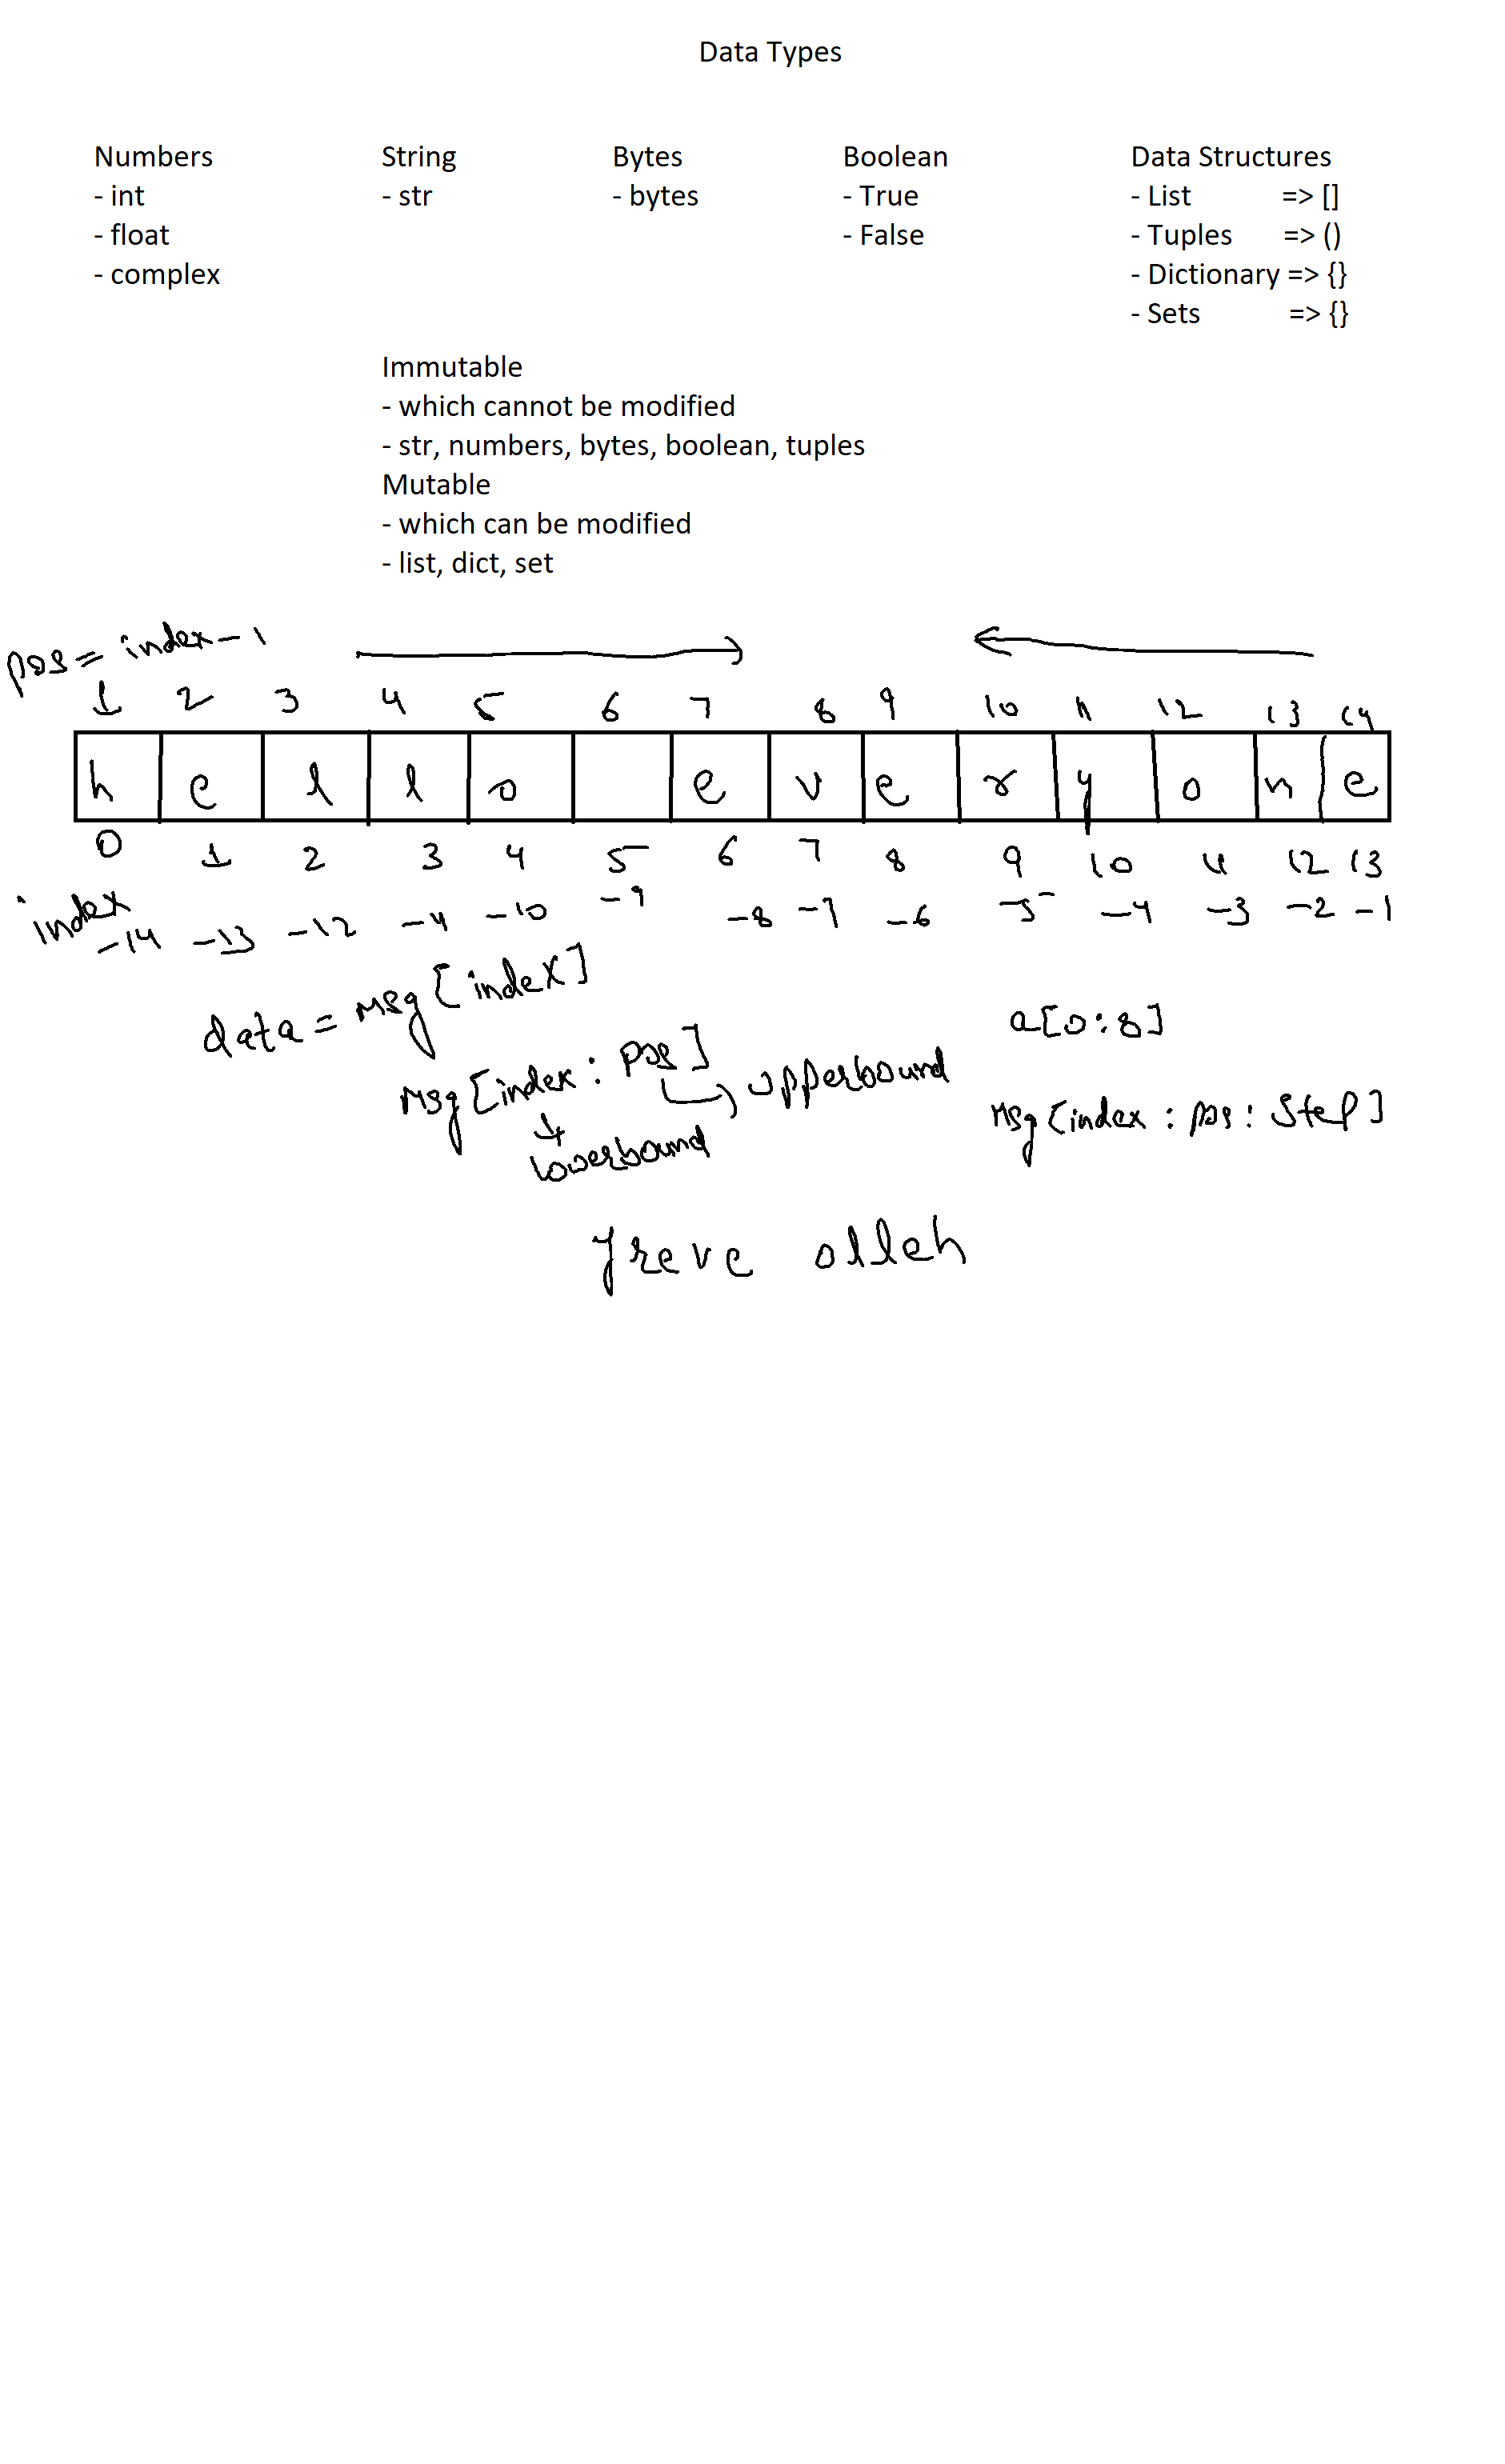 Data Types
Numbers
- int
- float
- complex
String
- str
Bytes
- bytes
Boolean
- True
- False
Data Structures
- List => []
- Tuples => ()
- Dictionary => {}
- Sets => {}
Immutable
- which cannot be modified
- str, numbers, bytes, boolean, tuples
Mutable
- which can be modified
- list, dict, set
pos = index - 1
1 2 3 4 5 6 7 8 9 10 11 12 13 14
h e l l o e v e r y o n e
0 1 2 3 4 5 6 7 8 9 10 11 12 13
index
-14 -13 -12 -11 -10 -9 -8 -7 -6 -5 -4 -3 -2 -1
data = msg[index]
a[0:8]
msg[index : pos] upperbound
lowerbound
msg[index : pos : step]
yreve olleh